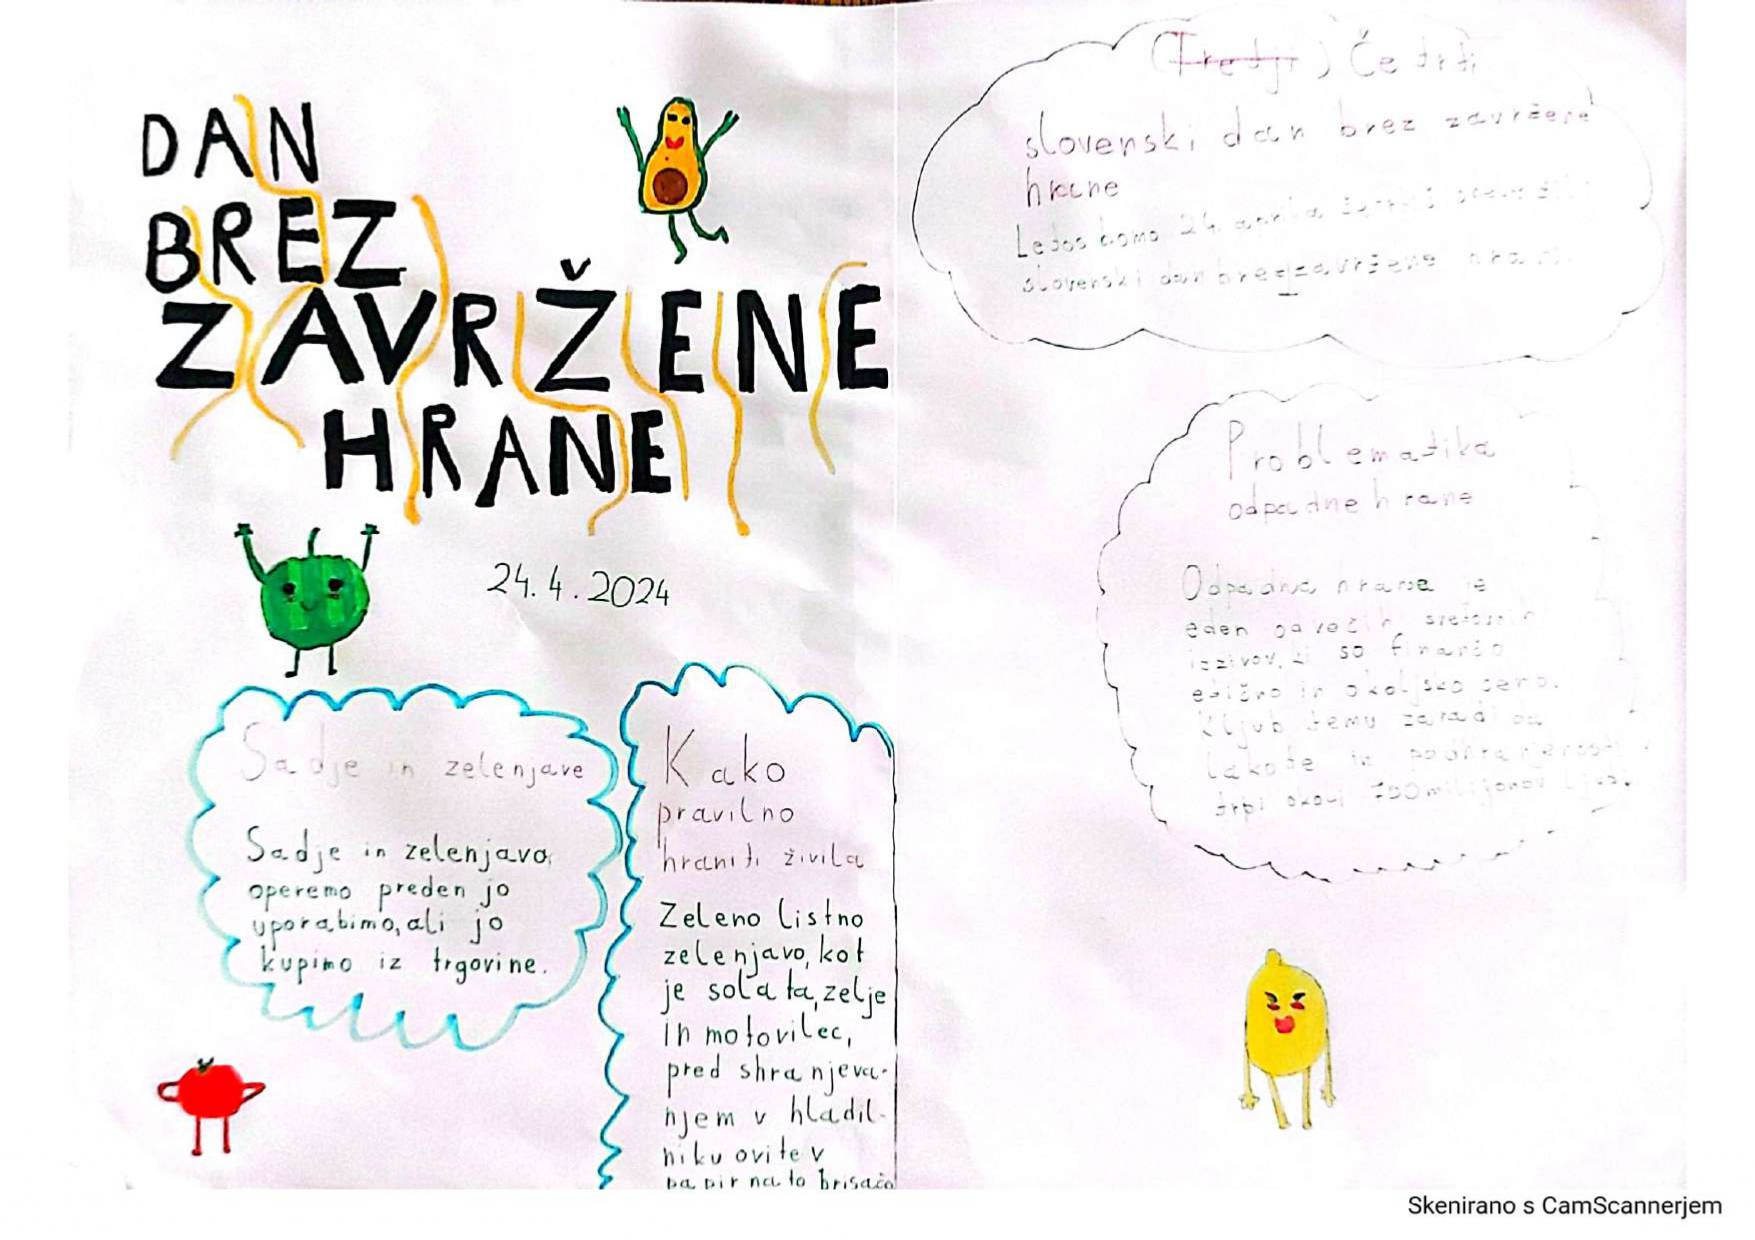 DAN
BREZ
ZAVRŽENE
HRANE
24.4.2024
Sadje in zelenjave
Sadje in zelenjavo
operemo preden jo
uporabimo, ali jo
kupimo iz trgovine.
Kako
pravilno
hraniti živila
Zeleno listno
zelenjavo, kot
je solata, zelje
in motovilec,
pred shranjeva-
njem v hladil-
niku ovite v
papirnato brisačo
(Tretji) Četrti
slovenski dan brez zavržene
hrane
Letos bomo 24. aprila
slovenski dan brez zavržene hrane.
Problematika
odpadne hrane
Odpadna hrana je
eden
izzivov, ki so
etično in okoljsko ceno.
Kljub temu zaradi
lakote in podhranjenosti
trpi okoli 750 milijonov ljudi.
Skenirano s CamScannerjem